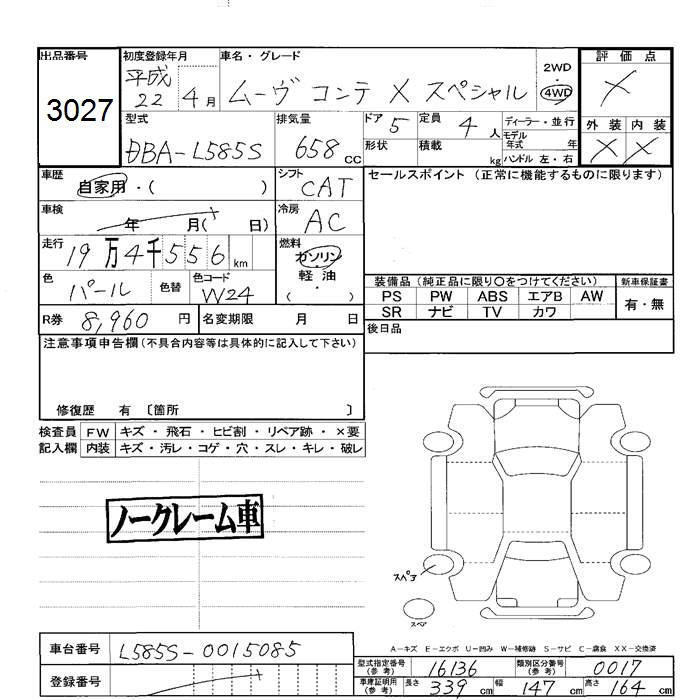 出品番号
3027
初度登録年月
平成
22 4月
車名・グレード
ムーヴ コンテ X スペシャル
2WD
・
4WD
評価点
X
外装 内装
X X
型式
DBA-L585S
排気量
658 cc
ドア 5
定員 4 人
形状
積載 kg
ディーラー・並行
モデル
年式 年
ハンドル 左・右
車歴
自家用・( )
シフト
CAT
セールスポイント (正常に機能するものに限ります)
車検
年 月( 日)
冷房
AC
走行
19万4千556km
燃料
ガソリン
・
軽油
( )
色
パール 色替
色コード
W24
装備品 (純正品に限り〇をつけてください)
PS PW ABS エアB AW
SR ナビ TV カワ
新車保証書
有・無
R券 8,960 円
名変期限 月 日
後日品
注意事項申告欄 (不具合内容等は具体的に記入して下さい)
修復歴 有 〔箇所 〕
検査員 FW キズ・飛石・ヒビ割・リペア跡・×要
記入欄 内装 キズ・汚レ・コゲ・穴・スレ・キレ・破レ
ノークレーム車
スペア
スペア
A−キズ E−エクボ U−凹み W−補修跡 S−サビ C−腐食 XX−交換済
車台番号 L585S-0015085
登録番号
型式指定番号
(参考)
16136
類別区分番号
(参考)
0017
車庫証明用
(参考)
長さ 339 cm 幅 147 cm 高さ 164 cm